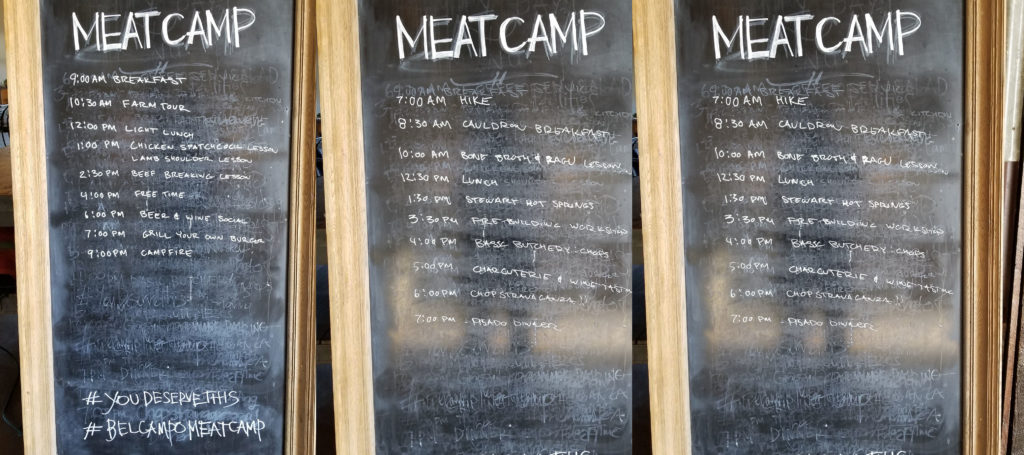 MEAT CAMP
9:00 AM BREAKFAST
10:30 AM FARM TOUR
12:00 PM LIGHT LUNCH
1:00 PM CHICKEN SPATCHCOCK LESSON
LAMB SHOULDER LESSON
2:30 PM BEEF BREAKING LESSON
4:00 PM FREE TIME
6:00 PM BEER & WINE SOCIAL
7:00 PM GRILL YOUR OWN BURGER
9:00 PM CAMPFIRE
# YOU DESERVE THIS
# BELCAMPO MEATCAMP
MEAT CAMP
7:00 AM HIKE
8:30 AM CAULDRON BREAKFAST
10:00 AM BONE BROTH & RAGU LESSON
12:30 PM LUNCH
1:30 PM STEWART HOT SPRINGS
3:30 PM FIRE-BUILDING WORKSHOP
4:00 PM BASIC BUTCHERY: CHOPS
5:00 PM CHARCUTERIE & WINE TASTING
6:00 PM CHOPSTRAVAGANZA!!
7:00 PM ASADO DINNER
MEAT CAMP
7:00 AM HIKE
8:30 AM CAULDRON BREAKFAST
10:00 AM BONE BROTH & RAGU LESSON
12:30 PM LUNCH
1:30 PM STEWART HOT SPRINGS
3:30 PM FIRE-BUILDING WORKSHOP
4:00 PM BASIC BUTCHERY: CHOPS
5:00 PM CHARCUTERIE & WINE TASTING
6:00 PM CHOPSTRAVAGANZA!!
7:00 PM ASADO DINNER